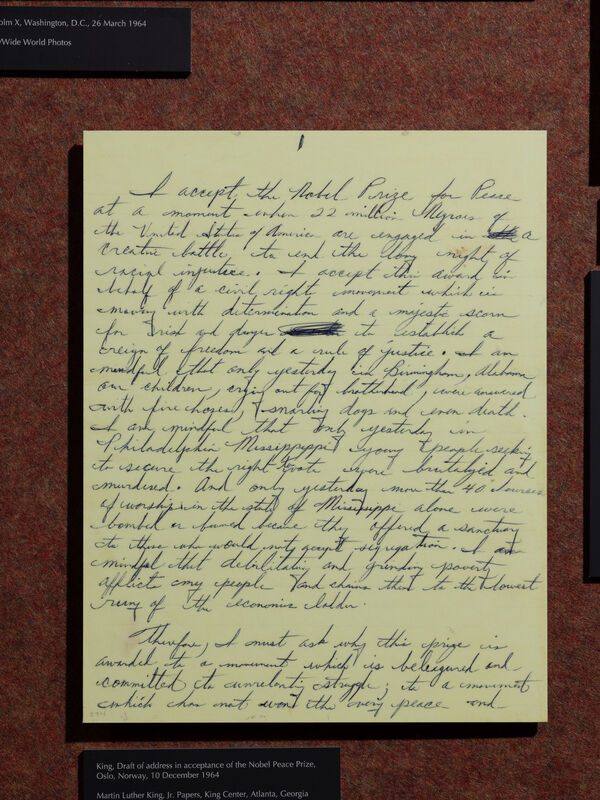 olm X, Washington, D.C., 26 March 1964
/Wide World Photos
I accept the Nobel Prize for Peace
at a moment when 22 million Negroes of
the United States of America are engaged in a
creative battle to end the long night of
racial injustice. I accept this award in
behalf of a civil rights movement which is
moving with determination and a majestic scorn
for risk and danger to establish a
reign of freedom and a rule of justice. I am
mindful that only yesterday in Birmingham, Alabama
our children, crying out for brotherhood, were answered
with fire hoses, snarling dogs and even death.
I am mindful that only yesterday in
Philadelphia Mississippi young people seeking
to secure the right to vote were brutalized and
murdered. And only yesterday more than 40 houses
of worship in the state of Mississippi alone were
bombed or burned because they offered a sanctuary
to those who would not accept segregation. I am
mindful that debilitating and grinding poverty
afflicts my people and chains them to the lowest
rung of the economic ladder.
Therefore, I must ask why this prize is
awarded to a movement which is beleagured and
committed to unrelenting struggle; to a movement
which has not won the very peace and
King, Draft of address in acceptance of the Nobel Peace Prize,
Oslo, Norway, 10 December 1964
Martin Luther King, Jr. Papers, King Center, Atlanta, Georgia